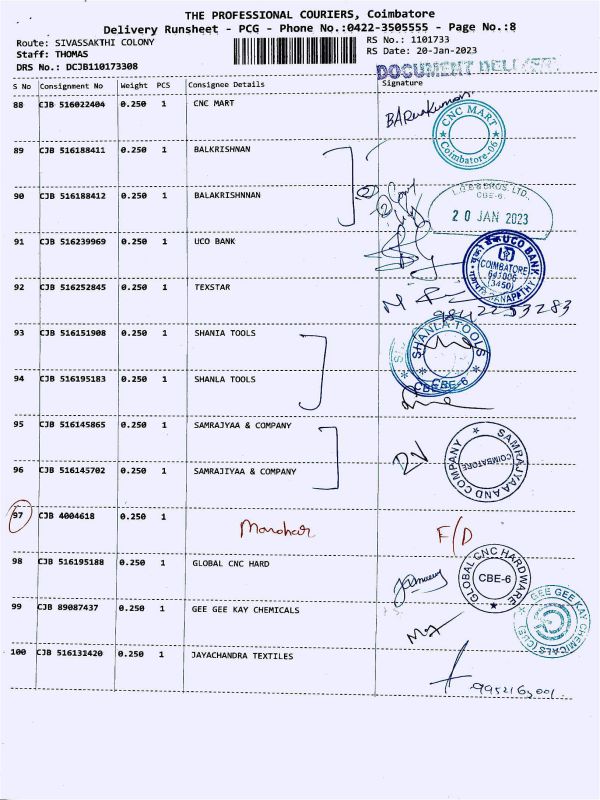 THE PROFESSIONAL COURIERS, Coimbatore
Delivery Runsheet - PCG - Phone No.:0422-3505555 - Page No.:8
Route: SIVASSAKTHI COLONY RS No.: 1101733
Staff: THOMAS RS Date: 20-Jan-2023
DRS No.: DCJB110173308
DOCUMENT DELIVER
S No Consignment No Weight PCS Consignee Details Signature
88 CJB 516022404 0.250 1 CNC MART
CNC MART Coimbatore-06
89 CJB 516188411 0.250 1 BALKRISHNAN
90 CJB 516188412 0.250 1 BALAKRISHNNAN
L.G.B & BROS. LTD.
CBE-6.
20 JAN 2023
91 CJB 516239969 0.250 1 UCO BANK
UCO BANK
COIMBATORE
641006
(3450)
GANAPATHY
92 CJB 516252845 0.250 1 TEXSTAR
93 CJB 516151908 0.250 1 SHANIA TOOLS
SHANLA TOOLS
CBE-6
94 CJB 516195183 0.250 1 SHANLA TOOLS
95 CJB 516145865 0.250 1 SAMRAJYAA & COMPANY
96 CJB 516145702 0.250 1 SAMRAJIYAA & COMPANY
SAMRAJYAA AND COMPANY
COIMBATORE
97 CJB 4004618 0.250 1 Manohar F/D
98 CJB 516195188 0.250 1 GLOBAL CNC HARD
GLOBAL CNC HARDWARE
CBE-6
99 CJB 89087437 0.250 1 GEE GEE KAY CHEMICALS
GEE GEE KAY CHEMICALS (CBE)
100 CJB 516131420 0.250 1 JAYACHANDRA TEXTILES